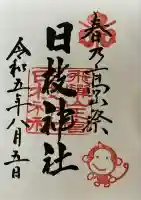 春乃高山祭
日枝神社
令和五年八月五日